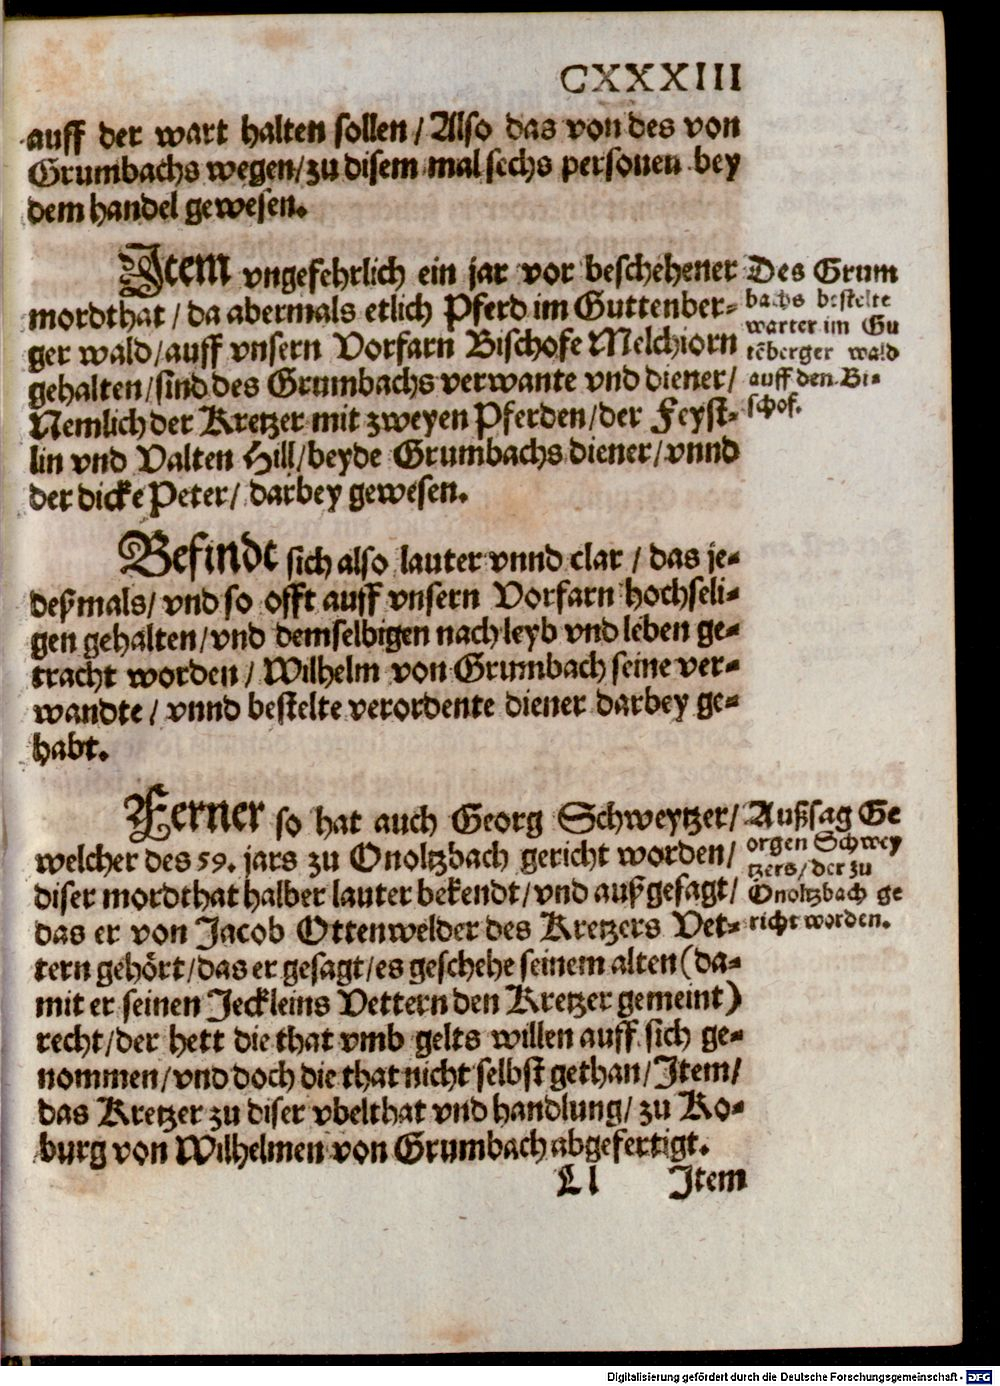 CXXXIII
auff der wart halten sollen / Also das von des von
Grumbachs wegen / zu disem mal sechs personen bey
dem handel gewesen.
Item vngefehrlich ein jar vor beschehener
mordthat / da abermals etlich Pferd im Guttenber-
ger wald / auff vnsern Vorfarn Bischofe Melchiorn
gehalten / sind des Grumbachs verwante vnd diener /
Nemlich der Kretzer mit zweyen Pferden / der Feyst-
lin vnd Valten Hill / beyde Grumbachs diener / vnnd
der dicke Peter / darbey gewesen.
Des Grum
bachs bestelte
warter im Gu
tēberger wald
auff den Bi-
schof.
Befindt sich also lauter vnnd clar / das je-
deßmals / vnd so offt auff vnsern Vorfarn hochseli-
gen gehalten / vnd demselbigen nach leyb vnd leben ge-
tracht worden / Wilhelm von Grumbach seine ver-
wandte / vnnd bestelte verordente diener darbey ge-
habt.
Ferner so hat auch Georg Schweytzer /
welcher des 59. jars zu Onoltzbach gericht worden /
diser mordthat halber lauter bekendt / vnd außgesagt /
das er von Jacob Ottenwelder des Kretzers Vet-
tern gehört / das er gesagt / es geschehe seinem alten (da-
mit er seinen Jeckleins Vettern den Kretzer gemeint)
recht / der hett die that vmb gelts willen auff sich ge-
nommen / vnd doch die that nicht selbst gethan / Item /
das Kretzer zu diser vbelthat vnd handlung / zu Ko-
burg von Wilhelmen von Grumbach abgefertigt.
Außsag Ge
orgen Schwey
tzers / der zu
Onoltzbach ge
richt worden.
Ll Item
Digitalisierung gefördert durch die Deutsche Forschungsgemeinschaft - DFG